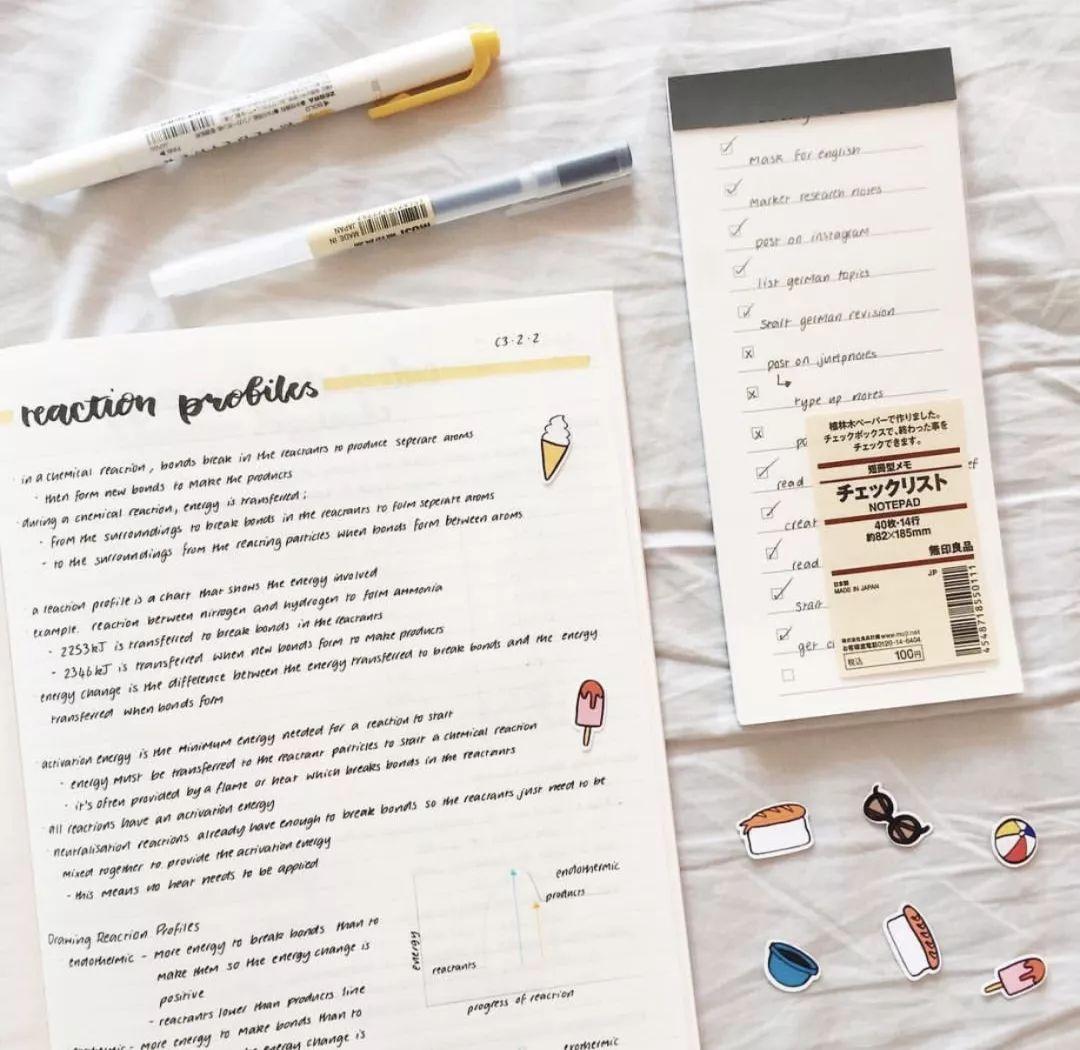 ZEBRA
MUJI
MADE IN JAPAN
mask for english
marker research notes
post on instagram
list german topics
start german revision
post on junipnotes
type up notes
read
creat
read
start
get
植林木ペーパーで作りました。
チェックボックスで、終わった事を
チェックできます。
短冊型メモ
チェックリスト
NOTEPAD
40枚・14行
約82×185mm
無印良品
JP
日本製
MADE IN JAPAN
株式会社良品計画 www.muji.net
お客様室電話0120-14-6404
税込 100円
4548718550111
C3·2·2
reaction profiles
· in a chemical reaction, bonds break in the reactants to produce seperate atoms
· then form new bonds to make the products
· during a chemical reaction, energy is transferred:
· from the surroundings to break bonds in the reactants to form seperate atoms
- to the surroundings from the reacting particles when bonds form between atoms
a reaction profile is a chart that shows the energy involved
example. reaction between nitrogen and hydrogen to form ammonia
· 2253kJ is transferred to break bonds in the reactants
- 2346kJ is transferred when new bonds form to make products
energy change is the difference between the energy transferred to break bonds and the energy
transferred when bonds form
activation energy is the minimum energy needed for a reaction to start
· energy must be transferred to the reactant particles to start a chemical reaction
· it's often provided by a flame or heat which breaks bonds in the reactants
· all reactions have an activation energy
· neutralisation reactions already have enough to break bonds so the reactants just need to be
mixed together to provide the activation energy
- this means no heat needs to be applied
Drawing Reaction Profiles
endothermic - more energy to break bonds than to
make them so the energy change is
positive
- reactants lower than products line
- more energy to make bonds than to
energy change is
endothermic
products
energy
reactants
progress of reaction
exothermic